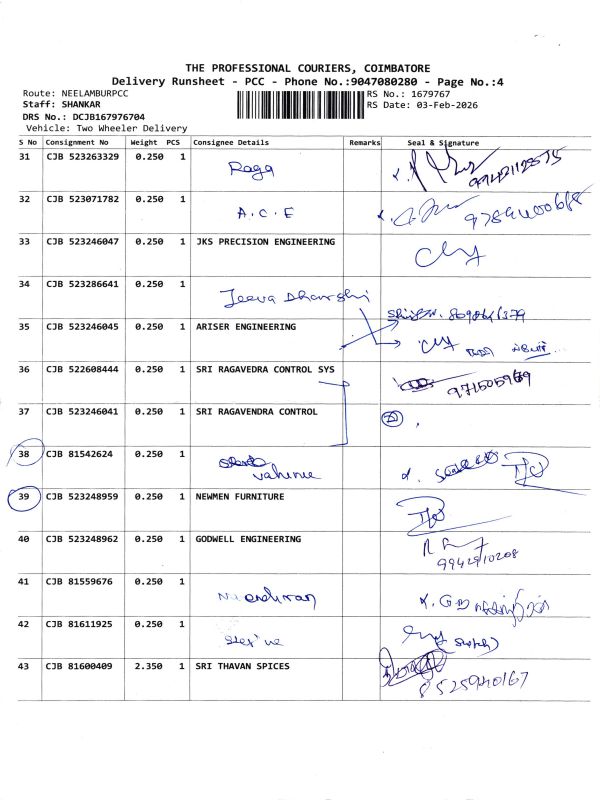 THE PROFESSIONAL COURIERS, COIMBATORE
Delivery Runsheet - PCC - Phone No.:9047080280 - Page No.:4
Route: NEELAMBURPCC
RS No.: 1679767
Staff: SHANKAR
RS Date: 03-Feb-2026
DRS No.: DCJB167976704
Vehicle: Two Wheeler Delivery
S No Consignment No Weight PCS Consignee Details Remarks Seal & Signature
31 CJB 523263329 0.250 1 Raga
32 CJB 523071782 0.250 1 A.C.E
33 CJB 523246047 0.250 1 JKS PRECISION ENGINEERING
34 CJB 523286641 0.250 1 Jeeva Dharshi
35 CJB 523246045 0.250 1 ARISER ENGINEERING
36 CJB 522608444 0.250 1 SRI RAGAVEDRA CONTROL SYS
37 CJB 523246041 0.250 1 SRI RAGAVENDRA CONTROL
38 CJB 81542624 0.250 1
39 CJB 523248959 0.250 1 NEWMEN FURNITURE
40 CJB 523248962 0.250 1 GODWELL ENGINEERING
9942910208
41 CJB 81559676 0.250 1
42 CJB 81611925 0.250 1
43 CJB 81600409 2.350 1 SRI THAVAN SPICES
8525940167